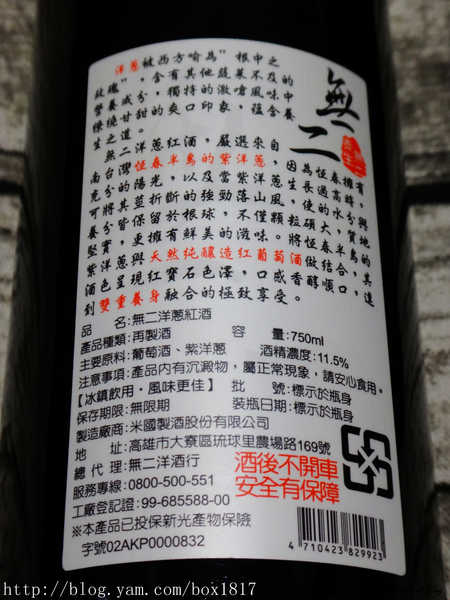 洋蔥被西方喻為”根中之
玫瑰”，含有其他蔬菜不及的
營養成分，獨特的激嗆風味中
繚繞甘甜的爽口印象，蘊含養
生之道。
無二
無二洋蔥紅酒，嚴選來自
南台灣恆春半島的紫洋蔥，因為恆春擁有
充分的陽光，以及當紫洋蔥生長過高時，
可將其莖折斷的強勁落山風，使的水分與
養分皆保留於根球，不僅顆粒碩大，質地
堅實，更擁有鮮美的滋味。將恆春半島的
紫洋蔥與天然純釀造紅葡萄酒做結合，其
酒色呈現紅寶石色澤，口感香醇順口，達
到雙重養身融合的極致享受。
品　名:無二洋蔥紅酒
產品種類:再製酒　容　量:750ml
主要原料:葡萄酒、紫洋蔥　酒精濃度:11.5%
注意事項:產品內有沉澱物，屬正常現象，請安心食用。
【冰鎮飲用‧風味更佳】　批　號:標示於瓶身
保存期限:無限期　裝瓶日期:標示於瓶身
製造廠商:米國製酒股份有限公司
地　址:高雄市大寮區琉球里農場路169號
總 代 理:無二洋酒行
服務專線:0800-500-551
工廠登記證:99-685588-00
※本產品已投保新光產物保險
字號02AKP0000832
酒後不開車
安全有保障
4 710423 829923
http://blog.yam.com/box1817